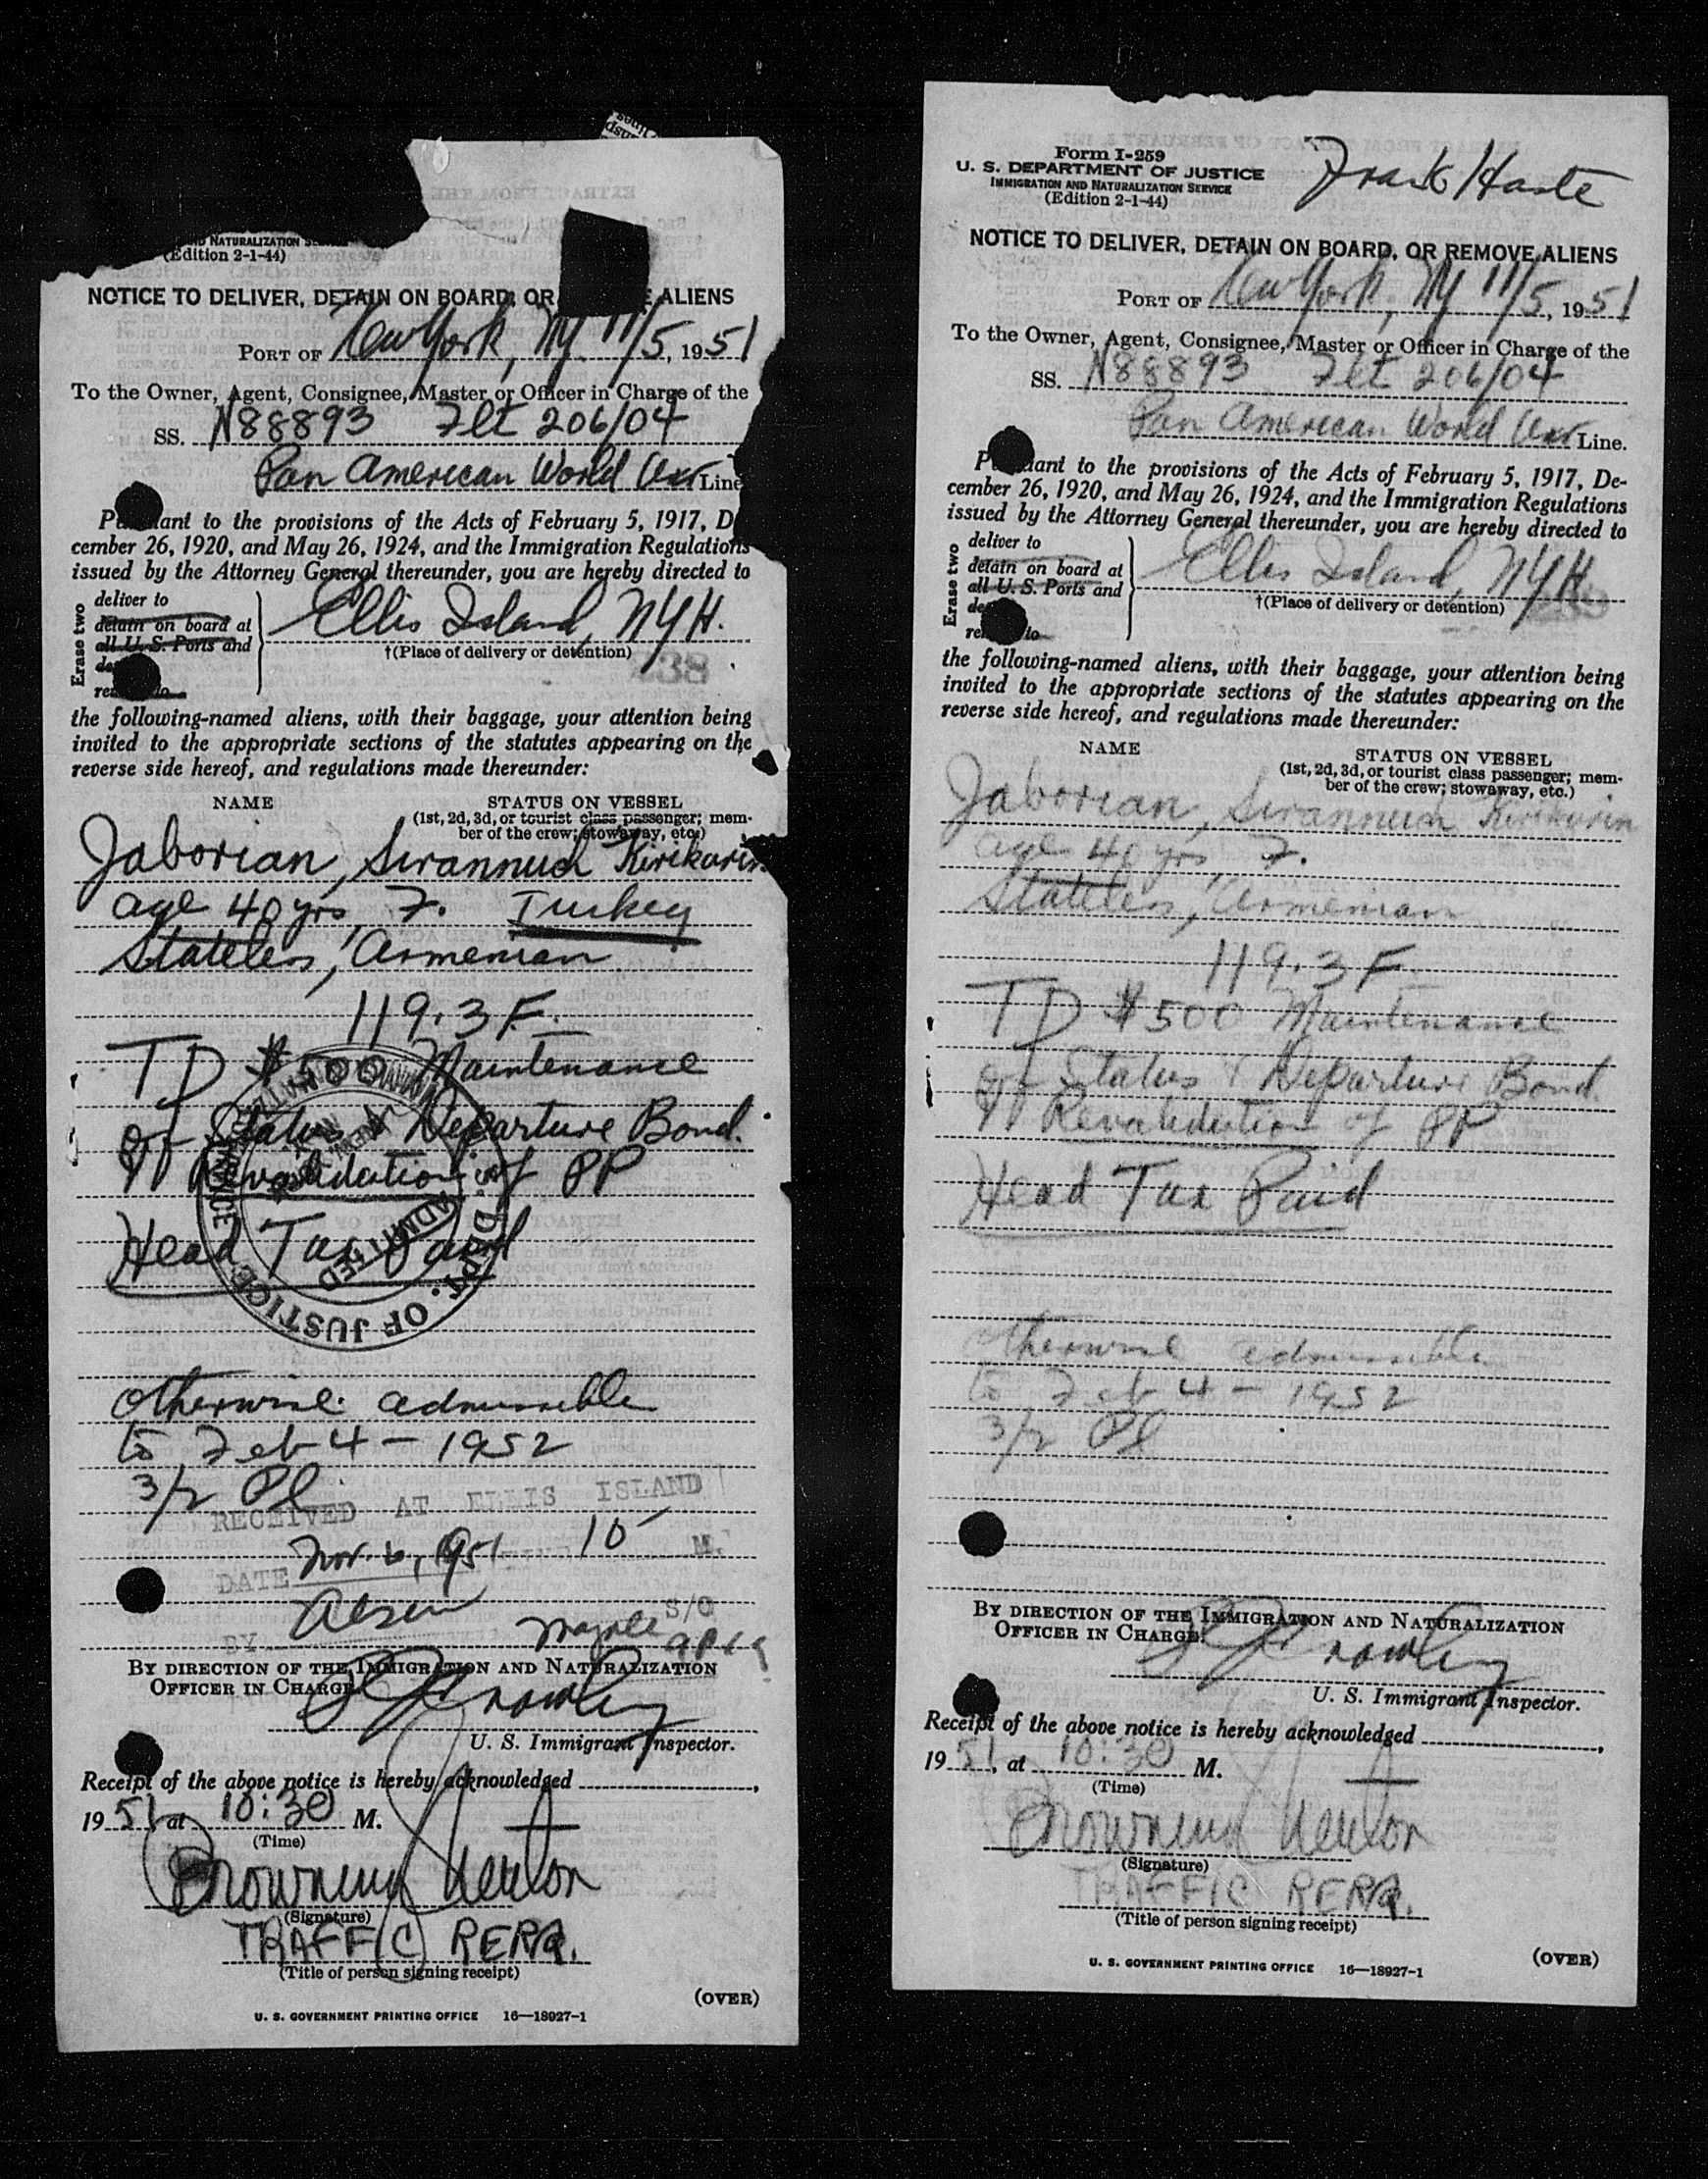 NATURALIZATION
(Edition 2-1-44)
NOTICE TO DELIVER, DETAIN ON BOARD, OR ALIENS
PORT OF New York, NY 11/5, 1951
To the Owner, Agent, Consignee, Master or Officer in Charge of the
SS. N88893 Flt 206/04
Pan American World Line
Pursuant to the provisions of the Acts of February 5, 1917, De-
cember 26, 1920, and May 26, 1924, and the Immigration Regulations
issued by the Attorney General thereunder, you are hereby directed to
Erase two
deliver to
detain on board at
all U. S. Ports and
Ellis Island, NYH.
†(Place of delivery or detention)
38
the following-named aliens, with their baggage, your attention being
invited to the appropriate sections of the statutes appearing on the
reverse side hereof, and regulations made thereunder:
NAME STATUS ON VESSEL
(1st, 2d, 3d, or tourist class passenger; mem-
ber of the crew; stowaway, etc.)
Jaborian, Sirannush
age 40 yrs, F. Turkey
Stateless, Armenian
119.3 F.
TD $500 Maintenance
of Status & Departure Bond.
Revalidation of PP
Head Tax Paid
DEPT. OF JUSTICE
ADMITTED
otherwise admissible
to Feb 4 - 1952
3/2 Pl
RECEIVED AT ELLIS ISLAND
DATE Nov. 6, 1951 10 M.
BY
BY DIRECTION OF THE IMMIGRATION AND NATURALIZATION
OFFICER IN CHARGE
Crowley
U. S. Immigrant Inspector.
Receipt of the above notice is hereby acknowledged
1951 at 10:30 M.
(Time)
Browning Newton
(Signature)
TRAFFIC REPR.
(Title of person signing receipt)
(OVER)
U. S. GOVERNMENT PRINTING OFFICE 16—18927-1
Form I-259
U. S. DEPARTMENT OF JUSTICE
IMMIGRATION AND NATURALIZATION SERVICE
(Edition 2-1-44)
Frank Haste
NOTICE TO DELIVER, DETAIN ON BOARD, OR REMOVE ALIENS
PORT OF New York, NY 11/5, 1951
To the Owner, Agent, Consignee, Master or Officer in Charge of the
SS. N88893 Flt 206/04
Pan American World Line.
Pursuant to the provisions of the Acts of February 5, 1917, De-
cember 26, 1920, and May 26, 1924, and the Immigration Regulations
issued by the Attorney General thereunder, you are hereby directed to
Erase two
deliver to
detain on board at
all U. S. Ports and
Ellis Island, NYH.
†(Place of delivery or detention)
the following-named aliens, with their baggage, your attention being
invited to the appropriate sections of the statutes appearing on the
reverse side hereof, and regulations made thereunder:
NAME STATUS ON VESSEL
(1st, 2d, 3d, or tourist class passenger; mem-
ber of the crew; stowaway, etc.)
Jaborian, Sirannush
age 40 yrs, F.
Stateless, Armenian
119.3 F
TD $500 Maintenance
of Status & Departure Bond.
Revalidation of PP
Head Tax Paid
otherwise admissible
to Feb 4 - 1952
3/2 Pl
BY DIRECTION OF THE IMMIGRATION AND NATURALIZATION
OFFICER IN CHARGE:
Crowley
U. S. Immigrant Inspector.
Receipt of the above notice is hereby acknowledged ,
1951, at 10:30 M.
(Time)
Browning Newton
(Signature)
TRAFFIC REPR.
(Title of person signing receipt)
(OVER)
U. S. GOVERNMENT PRINTING OFFICE 16—18927-1